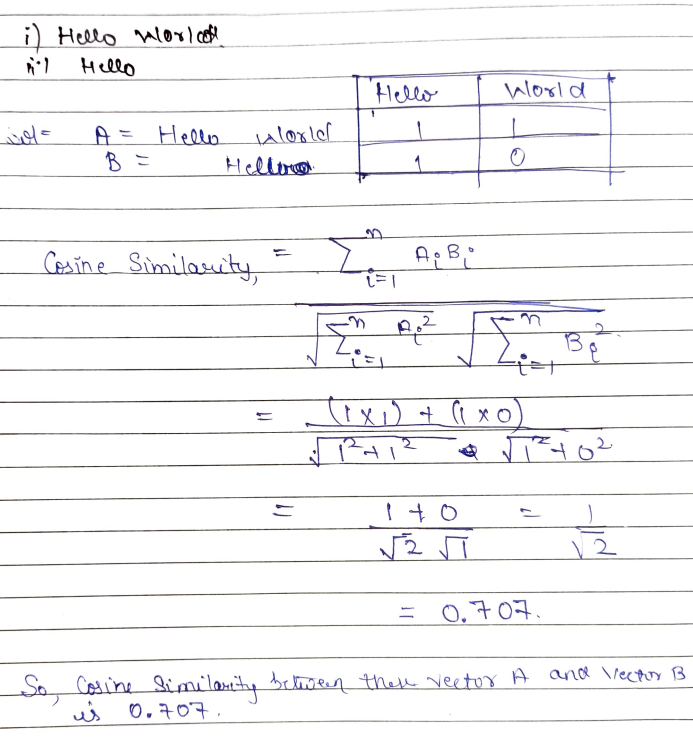 i) Hello World
ii) Hello
Hello World
sol= A = Hello World 1 1
B = Hello 1 0
Cosine Similarity, = \sum_{i=1}^{n} A_i B_i
\sqrt{\sum_{i=1}^{n} A_i^2} \sqrt{\sum_{i=1}^{n} B_i^2}
= (1×1) + (1×0)
\sqrt{1^2+1^2} \sqrt{1^2+0^2}
= 1+0 = 1
√2 √1 √2
= 0.707.
So, Cosine Similarity between these vector A and Vector B
is 0.707.